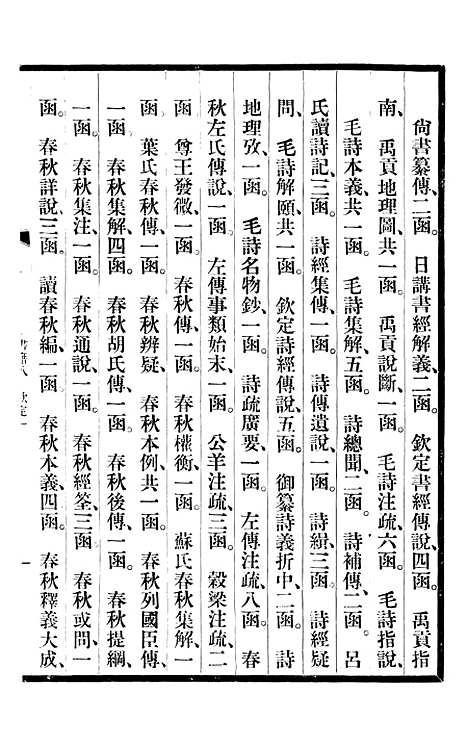 尚書纂傳、二函。 日講書經解義、二函。 欽定書經傳說、四函。 禹貢指
南、 禹貢地理圖、共一函。 禹貢說斷、一函。 毛詩注疏、六函。 毛詩指說、
毛詩本義、共一函。 毛詩集解、五函。 詩總聞、二函。 詩補傳、二函。 呂
氏讀詩記、三函。 詩經集傳、一函。 詩傳遺說、一函。 詩緝、三函。 詩經疑
問、 毛詩解頤、共一函。 欽定詩經傳說、五函。 御纂詩義折中、二函。 詩
地理攷、一函。 毛詩名物鈔、一函。 詩疏廣要、一函。 左傳注疏、八函。 春
秋左氏傳說、一函。 左傳事類始末、一函。 公羊注疏、三函。 穀梁注疏、二
函。 尊王發微、一函。 春秋傳、一函。 春秋權衡、一函。 蘇氏春秋集解、一
函。 葉氏春秋傳、一函。 春秋辨疑、 春秋本例、共一函。 春秋列國臣傳、
一函。 春秋集解、四函。 春秋胡氏傳、一函。 春秋後傳、一函。 春秋提綱、
一函。 春秋集注、一函。 春秋通說、一函。 春秋經筌、三函。 春秋或問、一
函。 春秋詳說、三函。 讀春秋編、一函。 春秋本義、四函。 春秋釋義大成、